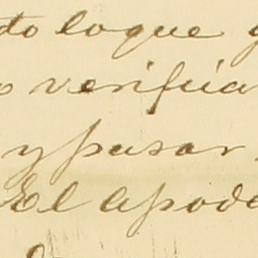 to loque
verifica
y pasar
El apode